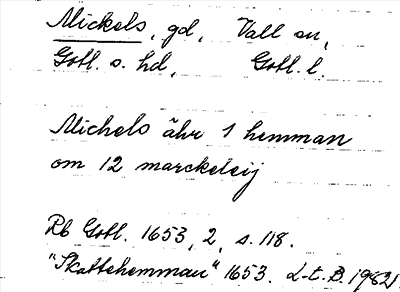 Mickels, gd, Vall sn,
Gotl. s. hd, Gotl. l.
Michels ähr 1 hemman
om 12 marckeleij
Rb Gotl. 1653, 2, s. 118.
"Skattehemman" 1653. L-t. B. 1982.